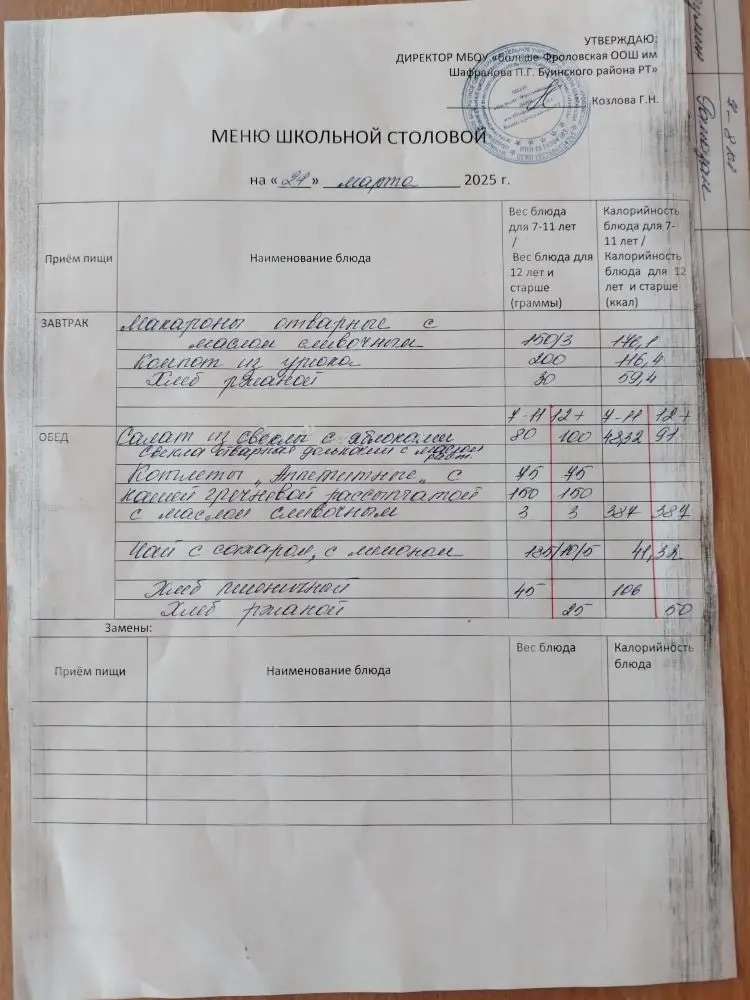 УТВЕРЖДАЮ:
ДИРЕКТОР МБОУ «больше-Фроловская ООШ им
Шафранова П.Г. Буинского района РТ»
Козлова Г.Н.
МЕНЮ ШКОЛЬНОЙ СТОЛОВОЙ
на «21» марта 2025 г.
Приём пищи Наименование блюда Вес блюда для 7-11 лет / Вес блюда для 12 лет и старше (граммы) Калорийность блюда для 7-11 лет / Калорийность блюда для 12 лет и старше (ккал)
ЗАВТРАК Макароны отварные с
маслом сливочным 150/3 176,1
Компот из урюка 200 116,4
Хлеб ржаной 30 59,4
7-11 12+ 7-11 12+
ОБЕД Салат из свеклы с яблоками 80 100 43,32 91
свекла отварная дольками с маслом раст.
Котлеты „Аппетитные" с 75 75
кашой гречневой рассыпчатой 150 150
с маслом сливочным 3 3 387 387
Чай с сахаром, с лимоном 185/10/5 41,32
Хлеб пшеничный 45 106
Хлеб ржаной 25 50
Замены:
Приём пищи Наименование блюда Вес блюда Калорийность блюда
7-8 кл